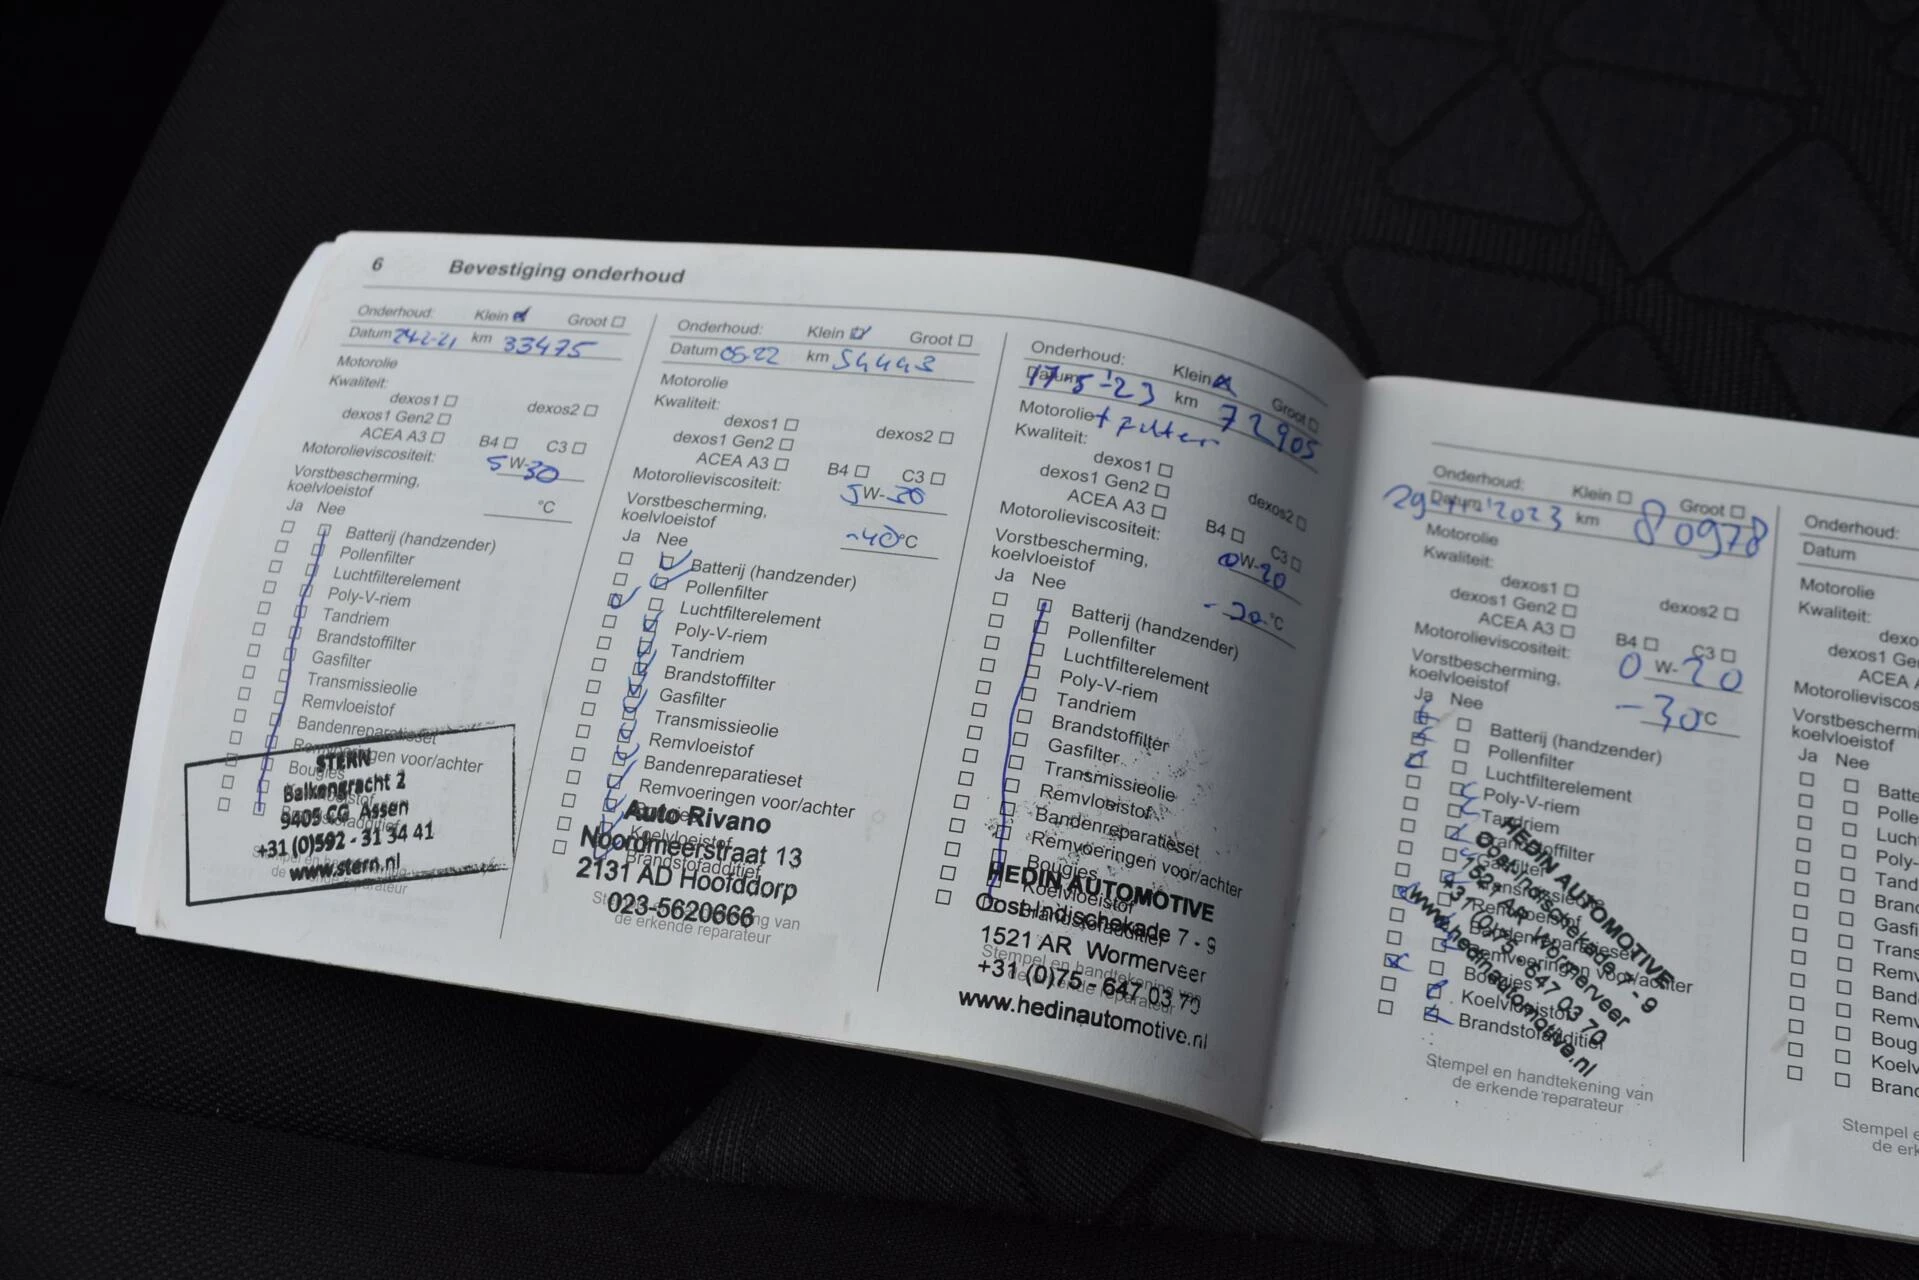 6 Bevestiging onderhoud
Onderhoud: Klein Groot
Datum 24-2-21 km 33475
Motorolie
Kwaliteit:
dexos1 dexos2
dexos1 Gen2
ACEA A3 B4 C3
Motorolieviscositeit: 5 W-30
Vorstbescherming,
koelvloeistof °C
Ja Nee
Batterij (handzender)
Pollenfilter
Luchtfilterelement
Poly-V-riem
Tandriem
Brandstoffilter
Gasfilter
Transmissieolie
Remvloeistof
Bandenreparatieset
Remvoeringen voor/achter
Bougies
STERN
Balkengracht 2
9405 CG Assen
+31 (0)592 - 31 34 41
www.stern.nl
Onderhoud: Klein Groot
Datum 05-22 km 54443
Motorolie
Kwaliteit:
dexos1 dexos2
dexos1 Gen2
ACEA A3 B4 C3
Motorolieviscositeit: 5W-30
Vorstbescherming,
koelvloeistof -40°C
Ja Nee
Batterij (handzender)
Pollenfilter
Luchtfilterelement
Poly-V-riem
Tandriem
Brandstoffilter
Gasfilter
Transmissieolie
Remvloeistof
Bandenreparatieset
Remvoeringen voor/achter
Koelvloeistof
Brandstofadditief
Auto Rivano
Noordmeerstraat 13
2131 AD Hoofddorp
023-5620666
Stempel en handtekening van
de erkende reparateur
Onderhoud: Klein Groot
Datum 17-5-'23 km 72905
Motorolie + Filter
Kwaliteit:
dexos1 dexos2
dexos1 Gen2
ACEA A3 B4 C3
Motorolieviscositeit: 0W-20
Vorstbescherming,
koelvloeistof -30°C
Ja Nee
Batterij (handzender)
Pollenfilter
Luchtfilterelement
Poly-V-riem
Tandriem
Brandstoffilter
Gasfilter
Transmissieolie
Remvloeistof
Bandenreparatieset
Remvoeringen voor/achter
Bougies
Koelvloeistof
Brandstofadditief
HEDIN AUTOMOTIVE
Oost-Indischekade 7 - 9
1521 AR Wormerveer
+31 (0)75 - 647 03 70
www.hedinautomotive.nl
Stempel en handtekening van
de erkende reparateur
Onderhoud: Klein Groot
Datum 29-11-'2023 km 80978
Motorolie
Kwaliteit:
dexos1 dexos2
dexos1 Gen2
ACEA A3 B4 C3
Motorolieviscositeit: 0 W-20
Vorstbescherming,
koelvloeistof -30°C
Ja Nee
Batterij (handzender)
Pollenfilter
Luchtfilterelement
Poly-V-riem
Tandriem
Brandstoffilter
Gasfilter
Transmissieolie
Remvloeistof
Bandenreparatieset
Remvoeringen voor/achter
Bougies
Koelvloeistof
Brandstofadditief
HEDIN AUTOMOTIVE
Oost-Indischekade 7 - 9
1521 AR Wormerveer
+31 (0)75 - 647 03 70
www.hedinautomotive.nl
Stempel en handtekening van
de erkende reparateur
Onderhoud:
Datum
Motorolie
Kwaliteit:
dexo
dexos1 Ge
ACEA A
Motorolieviscos
Vorstbescherm
koelvloeistof
Ja Nee
Batte
Polle
Luch
Poly-
Tand
Bran
Gasfi
Trans
Remv
Band
Remv
Boug
Koelv
Bran
Stempel e
de erk